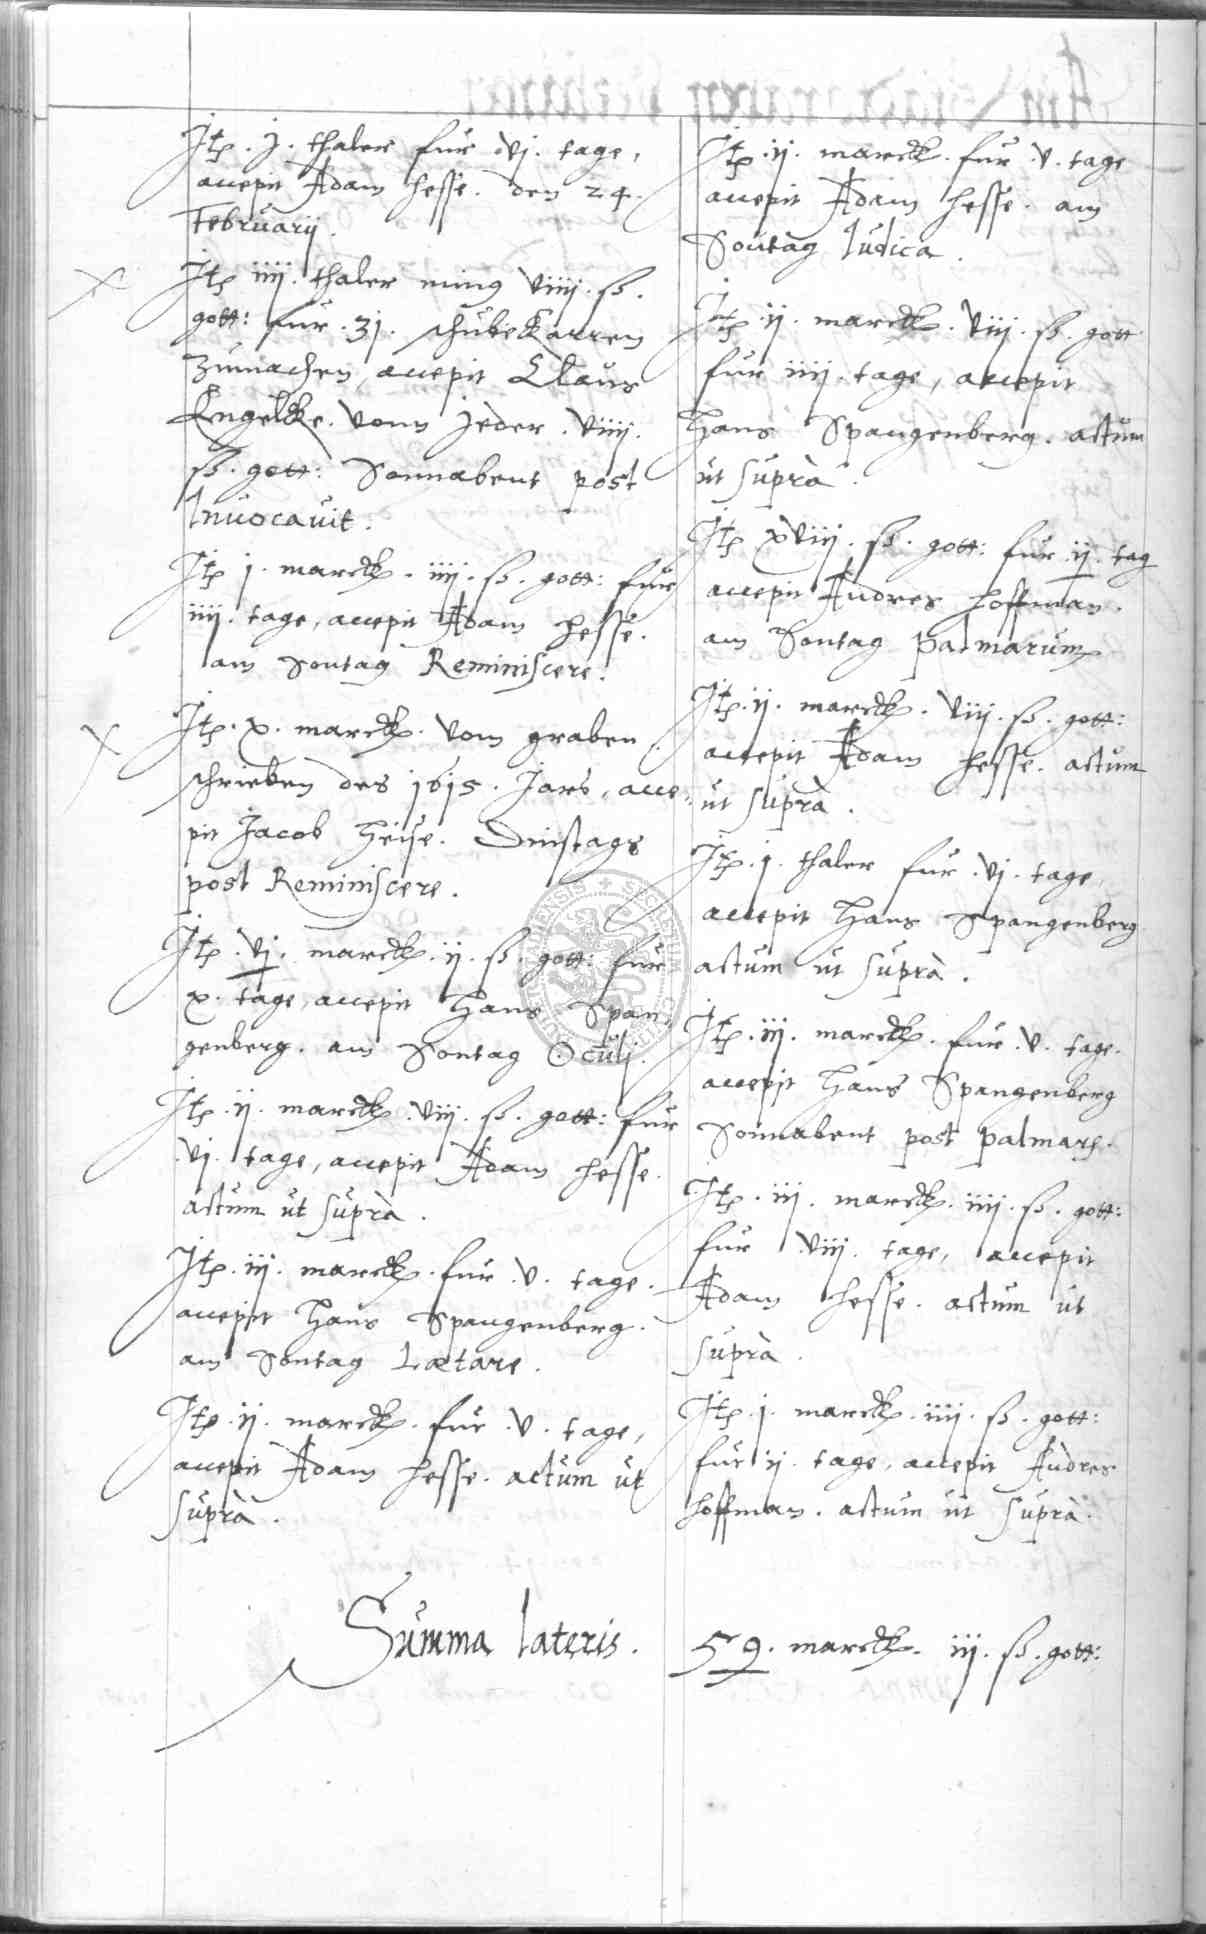 Itp. j. thaler fur vj. tage,
accepit Adam Hesse. den 24.
Februarij.
Itp iiij. thaler minus viiij. ß.
gott: fur. 31. schubekarren
zumachen, accepit Claus
Engelcke. vonn jeder. viiij.
ß. gott: Sonnabent post
Invocavit.
Itp j. marck. iiij. ß. gott: fur
iiij. tage, accepit Adam Hesse.
am Sontag Reminiscere.
Itp. x. marck. vom graben
schrieben des 1615. Jars, acce-
pit Jacob Heise. Dinstags
post Reminiscere.
Itp. vj. marck. ij. ß. gott: fur
x. tage, accepit Hans Span-
genberg. am Sontag Oculj.
Itp. ij. marck. viij. ß. gott: fur
vj. tage, accepit Adam Hesse.
actum ut suprà.
Itp. iij. marck. fur. v. tage.
accepit Hans Spangenberg.
am Sontag Lætare.
Itp. ij. marck. fur. v. tage,
accepit Adam Hesse. actum ut
suprà.
Itp. ij. marck. fur. v. tage
accepit Adam Hesse. am
Sontag Iudica.
Itp. ij. marck. viij. ß. gott
fur iiij. tage, accepit
Hans Spangenberg. actum
ut suprà.
Itp xviij. ß. gott: fur ij. tag
accepit Andres Hoffman.
am Sontag palmarum
Itp. ij. marck. viij. ß. gott:
accepit Adam Hesse. actum
ut suprà.
Itp. j. thaler fur. vj. tage,
accepit Hans Spangenberg
actum ut suprà.
Itp. iij. marck. fur. v. tage.
accepit Hans Spangenberg
Sonnabent post palmarũ.
Itp. iij. marck. iiij. ß. gott:
fur viij. tage, accepit
Adam Hesse. actum ut
suprà.
Itp. j. marck. iiij. ß. gott:
fur ij. tage, accepit Andres
Hoffman. actum ut suprà.
Summa lateris. 59. marck. iij. ß. gott: